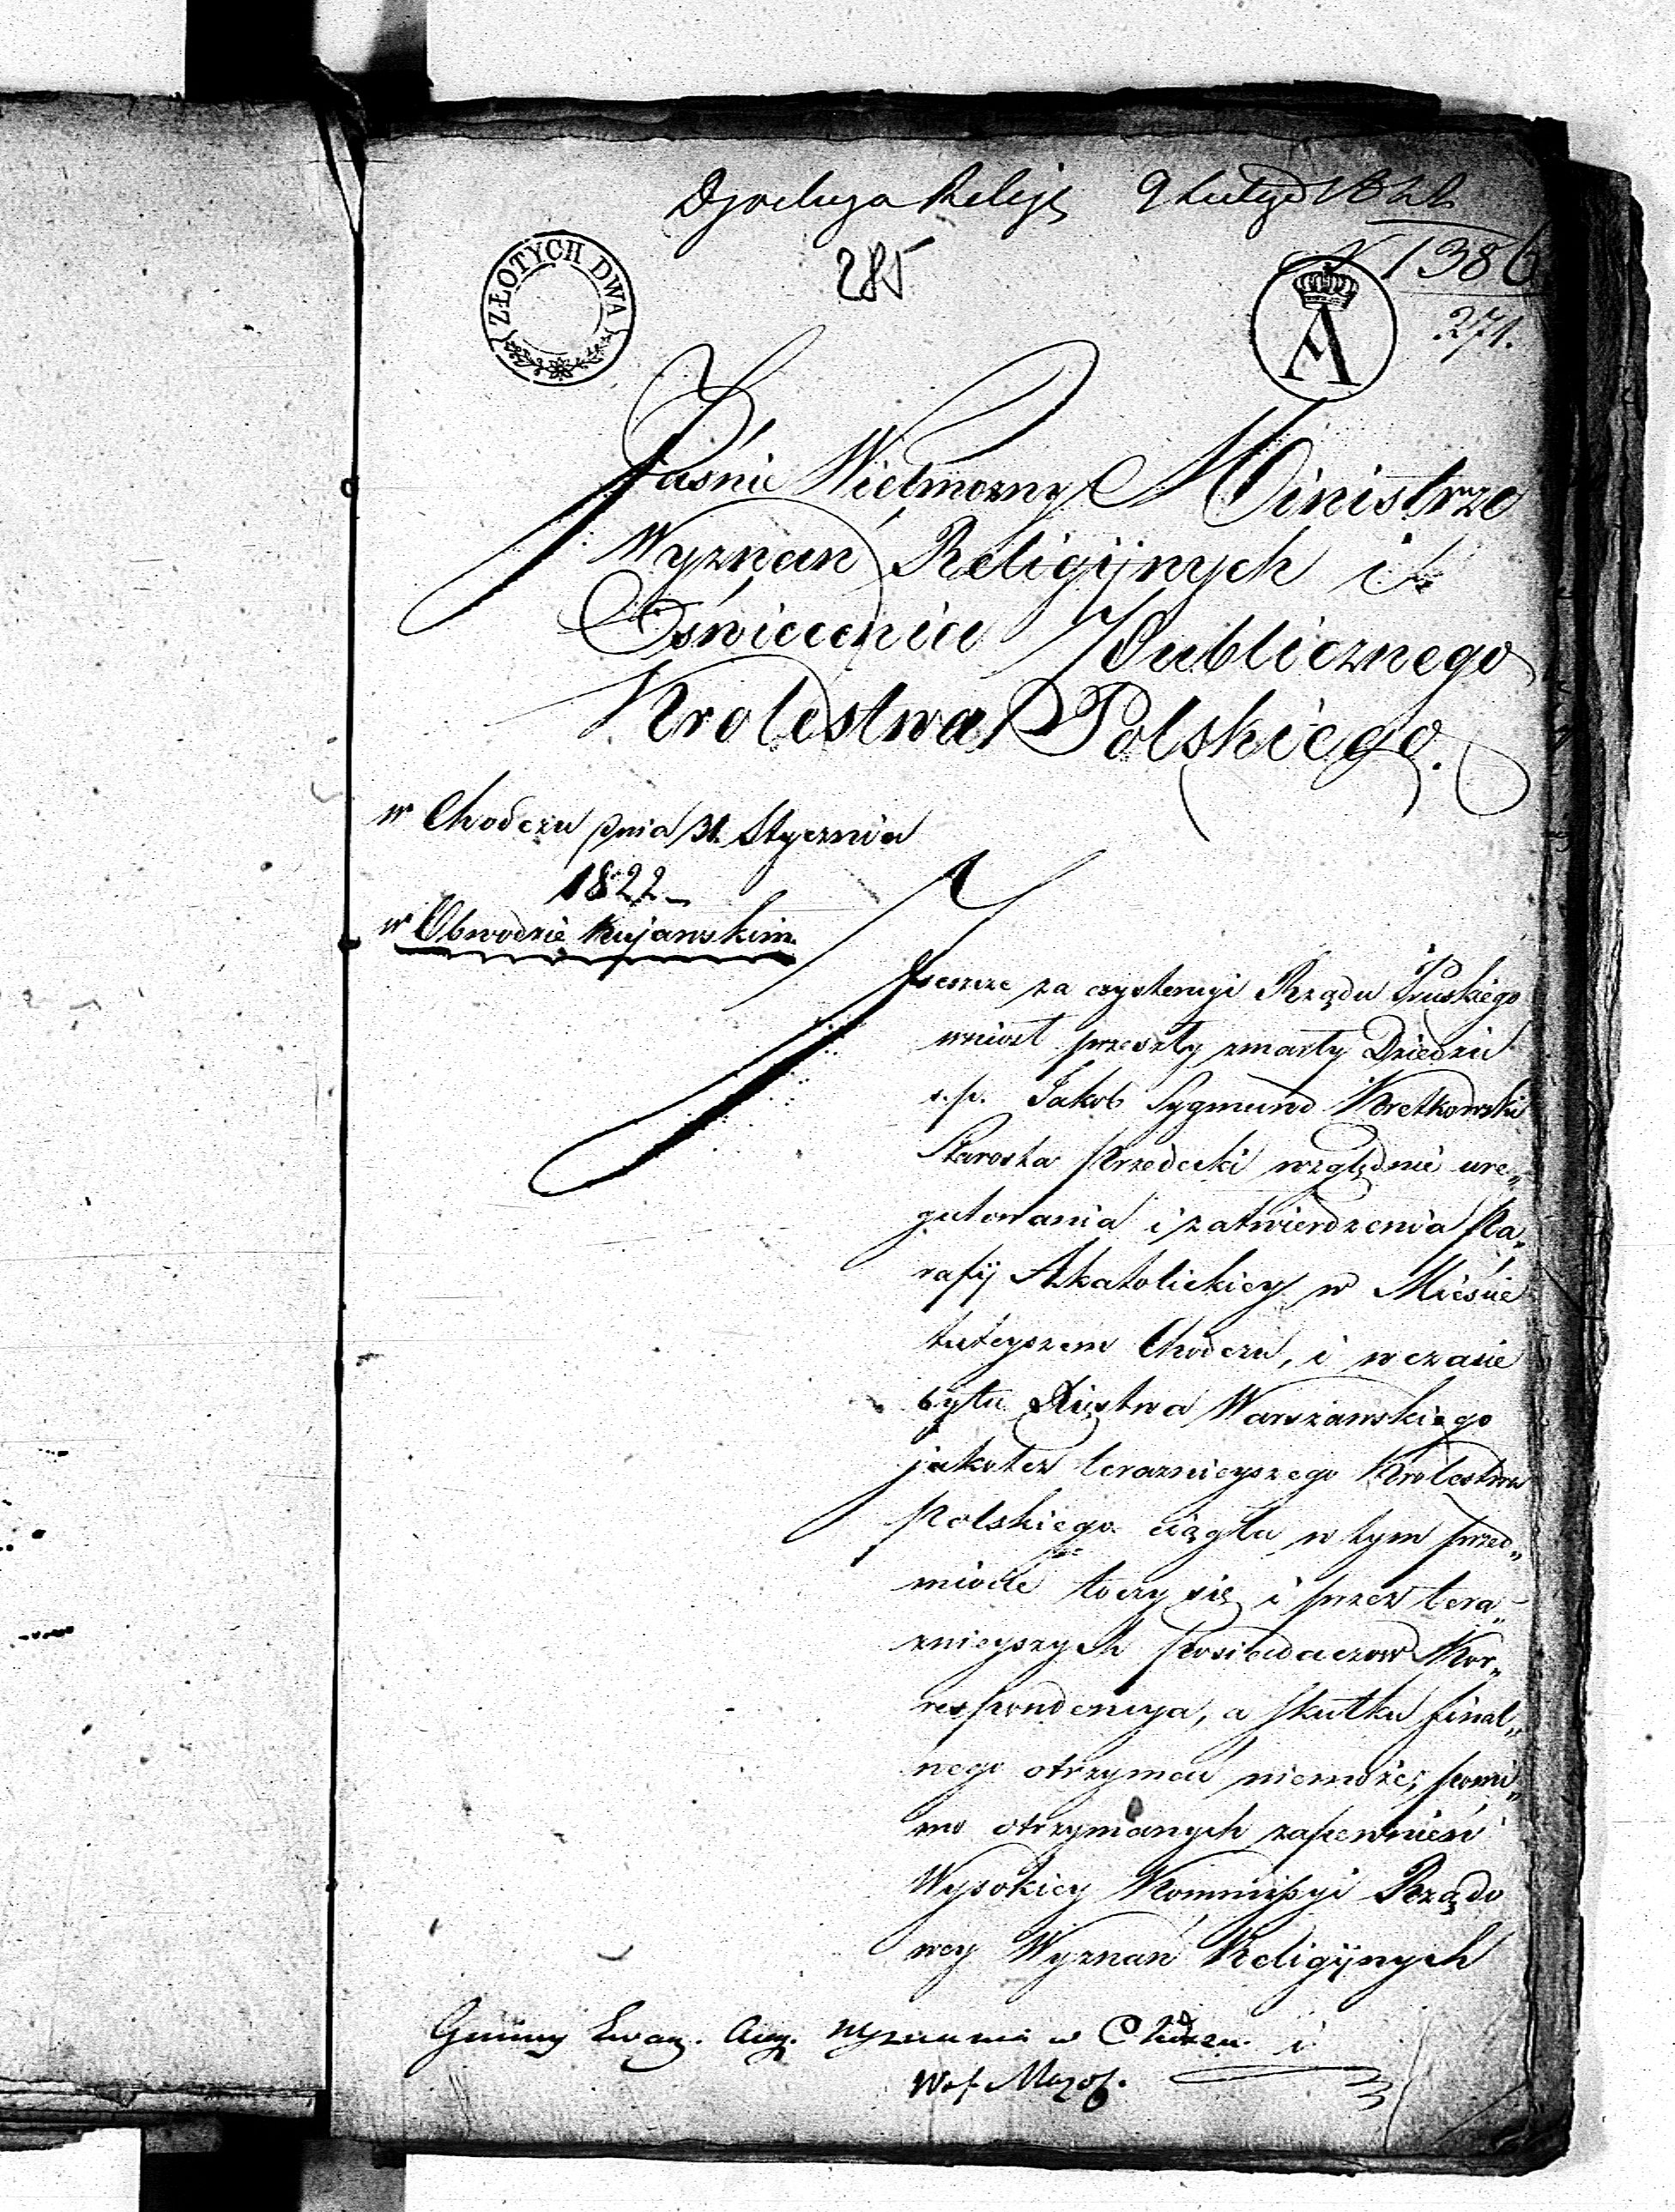 9 Lutego 1822
N 1386
285
271.
ZŁOTYCH DWA
A
Jaśnie Wielmozny Ministrze
Wyznań Religijnych i
Oświecenia Publicznego
Krolestwa Polskiego.
w Chodczu dnia 31. Stycznia
1822
w Obwodzie Kujawskim
Jeszcze za exystencyi Rządu Pruskiego
wniosł przeszły zmarły Dziedzic
s.p. Jakob Sygmund Kretkowski
Starosta Przedecki względnie ure„
gulowania i zatwierdzenia Pa„
rafij Akatolickiey w Mieście
tuteyszem Chodczu, i w czasie
bytu Xięstwa Warszawskiego
jakotez teraznieyszego Krolestwa
Polskiego ciągła w tym przed„
miocie toczy się i przez tera„
znieyszych Posiedaczow Kor„
respondencya, a skutku final„
nego otrzymać niemoże, pomi„
mo otrzymanych zapewnień
Wysokiey Kommissyi Rządo
wey Wyznań Religijnych
Gminy Ewang. Aug. Wyznania w Chodczu i
Woj. Mazow.